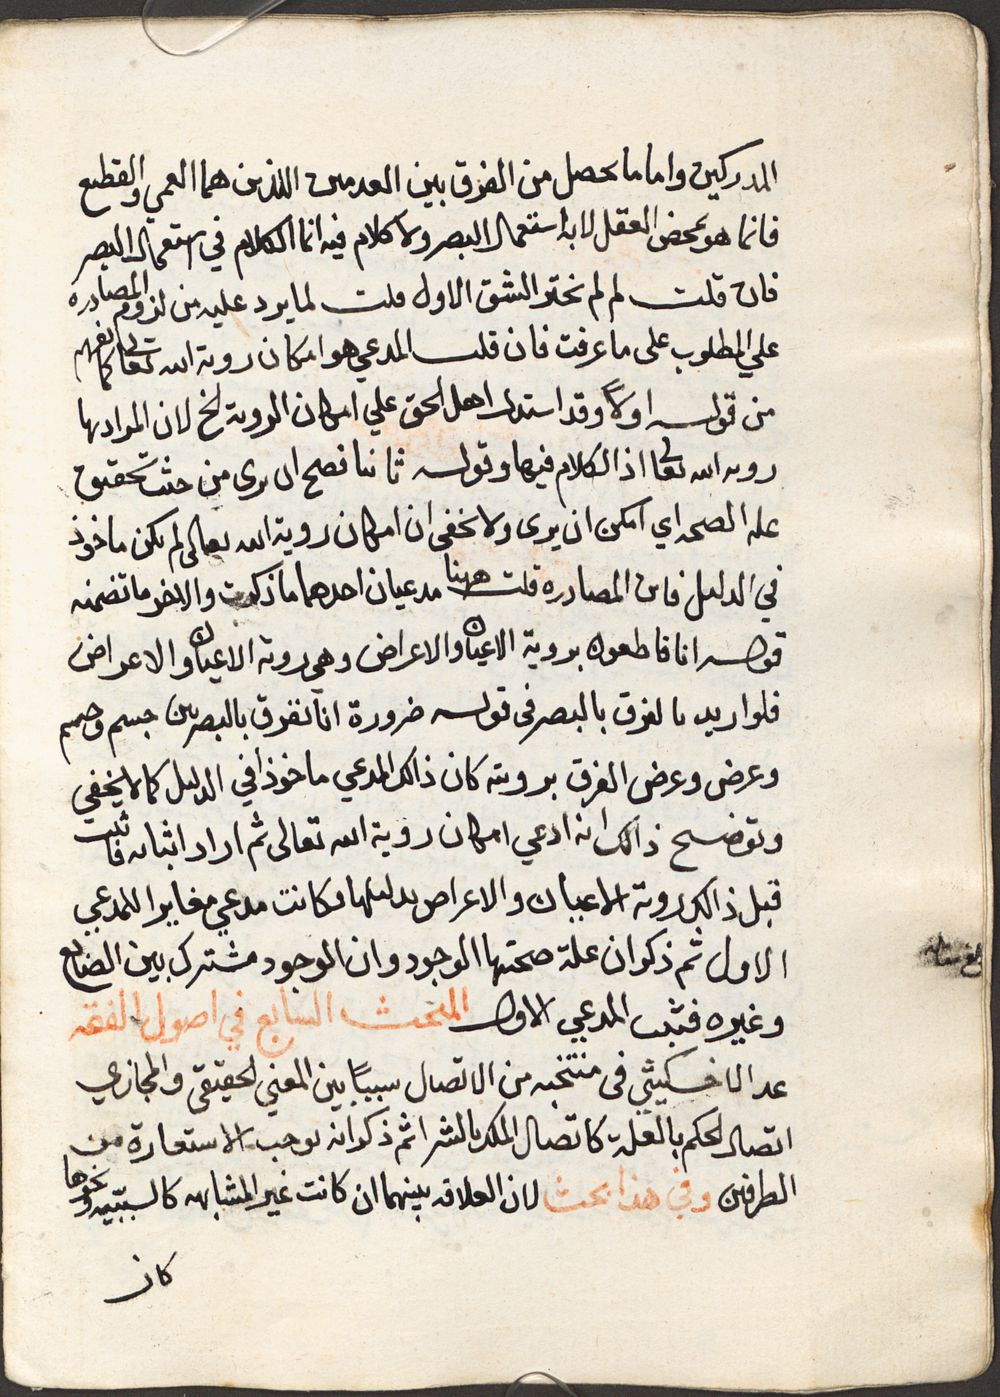 المدركين واما ما يحصل من الفرق بين العدمين اللذين هما العمي والقطيع
فانما هو بمحض العقل لا باستعمال البصر ولا كلام فيه انما الكلام في استعمال البصر
فان قلت لم لم نختر الشق الاول قلت لما يرد عليه من لزوم المصادره
علي المطلوب على ما عرفت فان قلت المدعي هو امكان روية الله تعالى كما يفهم
من قوله اولا وقد استدل اهل الحق علي امكان الروية الخ لان المراد بها
روية الله تعالى اذ الكلام فيها وقوله ثانيا فصح ان يرى من حيث تحقيق
علة الصحه اي امكن ان يرى ولا يخفى ان امكان روية الله تعالى لم يكن ماخوذ
في الدليل فاين المصادره قلت ههنا مدعيان احدهما ما ذكرت والاخر ما تضمنه
قوله انا قاطعون بروية الاعيان والاعراض وهي روية الاعيان والاعراض
فلو اريد بالفرق بالبصر في قوله ضرورة انا نفرق بالبصر بين جسم وجسم
وعرض وعرض الفرق برويته كان ذالك المدعي ماخوذا في الدليل كما لا يخفي
وتوضيح ذالك انه ادعي امكان روية الله تعالى ثم اراد اثباته فاثبت
قبل ذالك روية الاعيان والاعراض بدليلها فكانت مدعي مغايرا للمدعي
الاول ثم ذكر ان علة صحتها الوجود وان الوجود مشترك بين الصانع
وغيره فثبت المدعي الاول المبحث السابع في اصول الفقه
عد الاخسكيثي في منتخبه من الاتصال سببا بين المعني الحقيقي والمجازي
اتصال الحكم بالعلة كاتصال الملك بالشرا ثم ذكر انه يوجب الاستعارة من
الطرفين وفي هذا بحث لان العلاقه بينهما ان كانت غير المشابهه كالسببيه ونحوها
كان